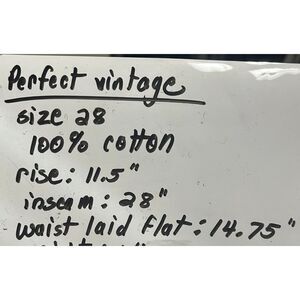 Perfect vintage
size 28
100% cotton
rise: 11.5"
inseam: 28"
waist laid flat: 14.75"